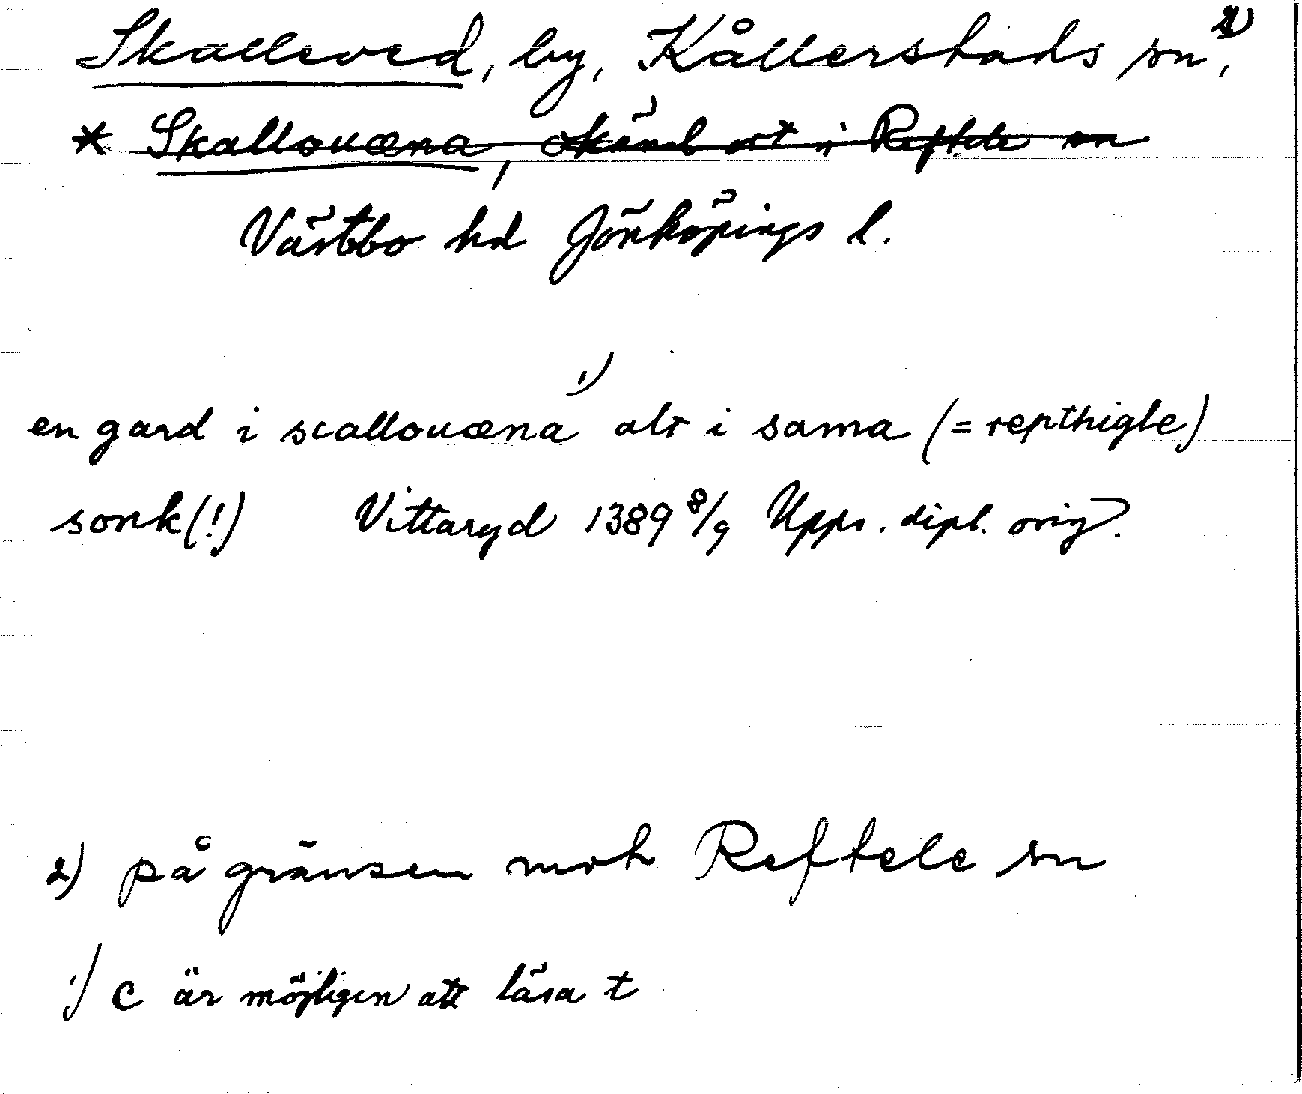 Skalleved, by, Kållerstads sn, 2)
* Skallouæna, okänd ort i Reftele sn
Västbo hd Jönköpings l.
en gard i scallouæna 1) alt i sama (= repthigle)
sonk(!) Vittaryd 1389 8/9 Upps. dipl. orig.
2) på gränsen mot Reftele sn
1) c är möjligen att läsa t